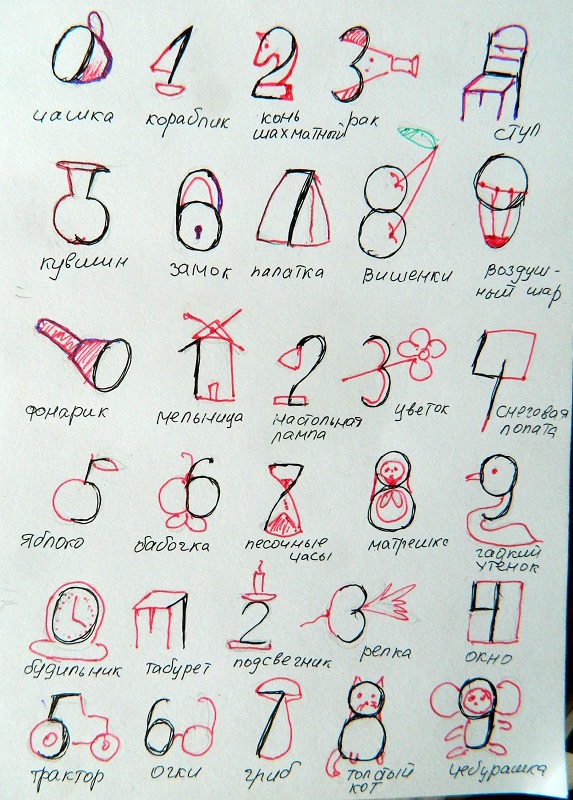 чашка
кораблик
конь
шахматный
рак
стул
кувшин
замок
палатка
вишенки
воздуш-
ный шар
фонарик
мельница
настольная
лампа
цветок
снеговая
лопата
яблоко
бабочка
песочные
часы
матрешка
гадкий
утенок
будильник
табурет
подсвечник
репка
окно
трактор
очки
гриб
толстый
кот
чебурашка